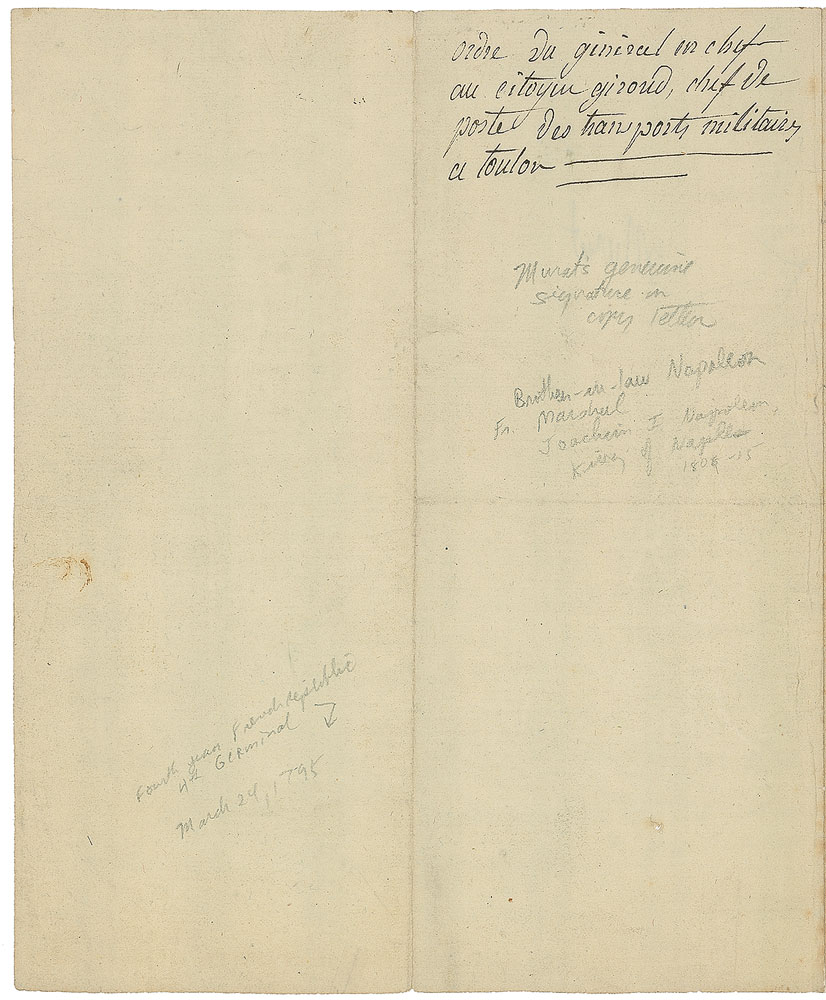 ordre du géneral en chef
au citoyen giroud, chef de
poste des transports militaires
a toulon
Murat's genuine
signature on
copy letter
Brother-in-law Napoleon
Fr. Marshal
Joachim I Napoleon,
King of Naples
1808-15
Fourth year French republic
4th Germinal
March 24, 1795